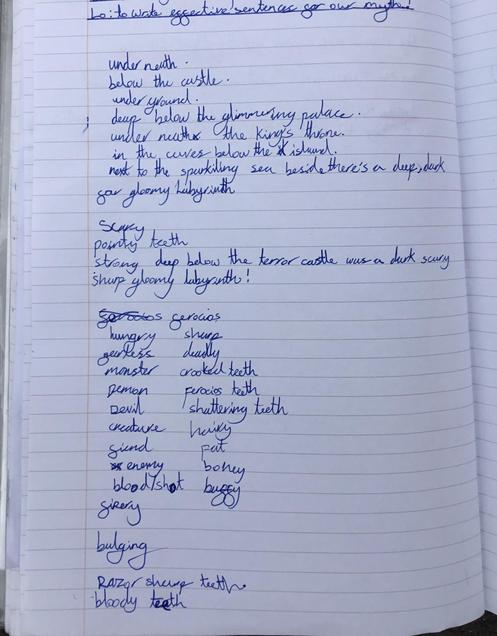 Lo: to write effective sentences for our myths!
under neath.
below the castle.
under ground.
deep below the glimmering palace.
under neath the King's throne.
in the caves below the island.
next to the sparkiling sea beside there's a deep, dark
gloomy Labyrinth
Scary
pointy teeth
strong deep below the terror castle was a dark scary
sharp gloomy labyrinth!
ferocios
hungry sharp
fearless deadly
monster crooked teeth
Demon ferocios teeth
Devil shattering teeth
creature hairy
fiend fat
enemy boney
blood/shot buggy
firery
bulging
Razor sharp teeth.
bloody teeth